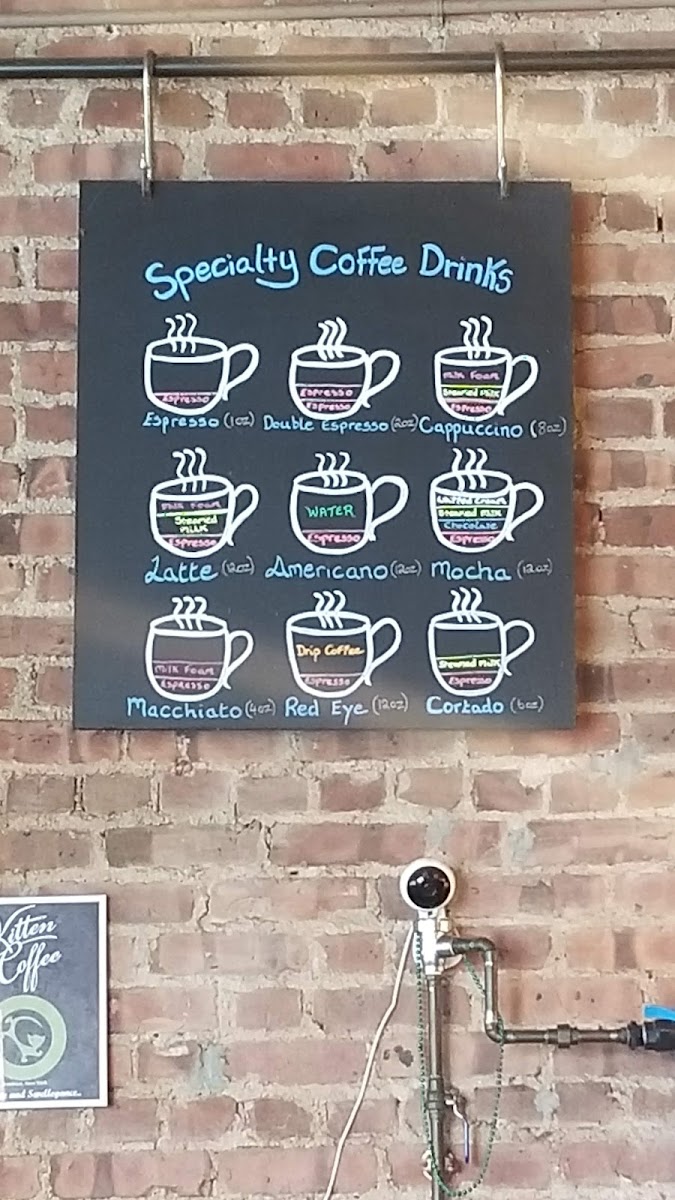 Specialty Coffee Drinks
Espresso
Espresso
Espresso
Milk Foam
Steamed Milk
Espresso
Espresso (1oz)
Double Espresso (2oz)
Cappuccino (8oz)
Milk Foam
Steamed
Milk
Espresso
WATER
Espresso
Whipped Cream
Steamed Milk
Chocolate
Espresso
Latte (12oz)
Americano (12oz)
Mocha (12oz)
Milk Foam
Espresso
Drip Coffee
Espresso
Steamed Milk
Espresso
Macchiato (4oz)
Red Eye (12oz)
Cortado (6oz)
Kitten
Coffee
and Swellegance..